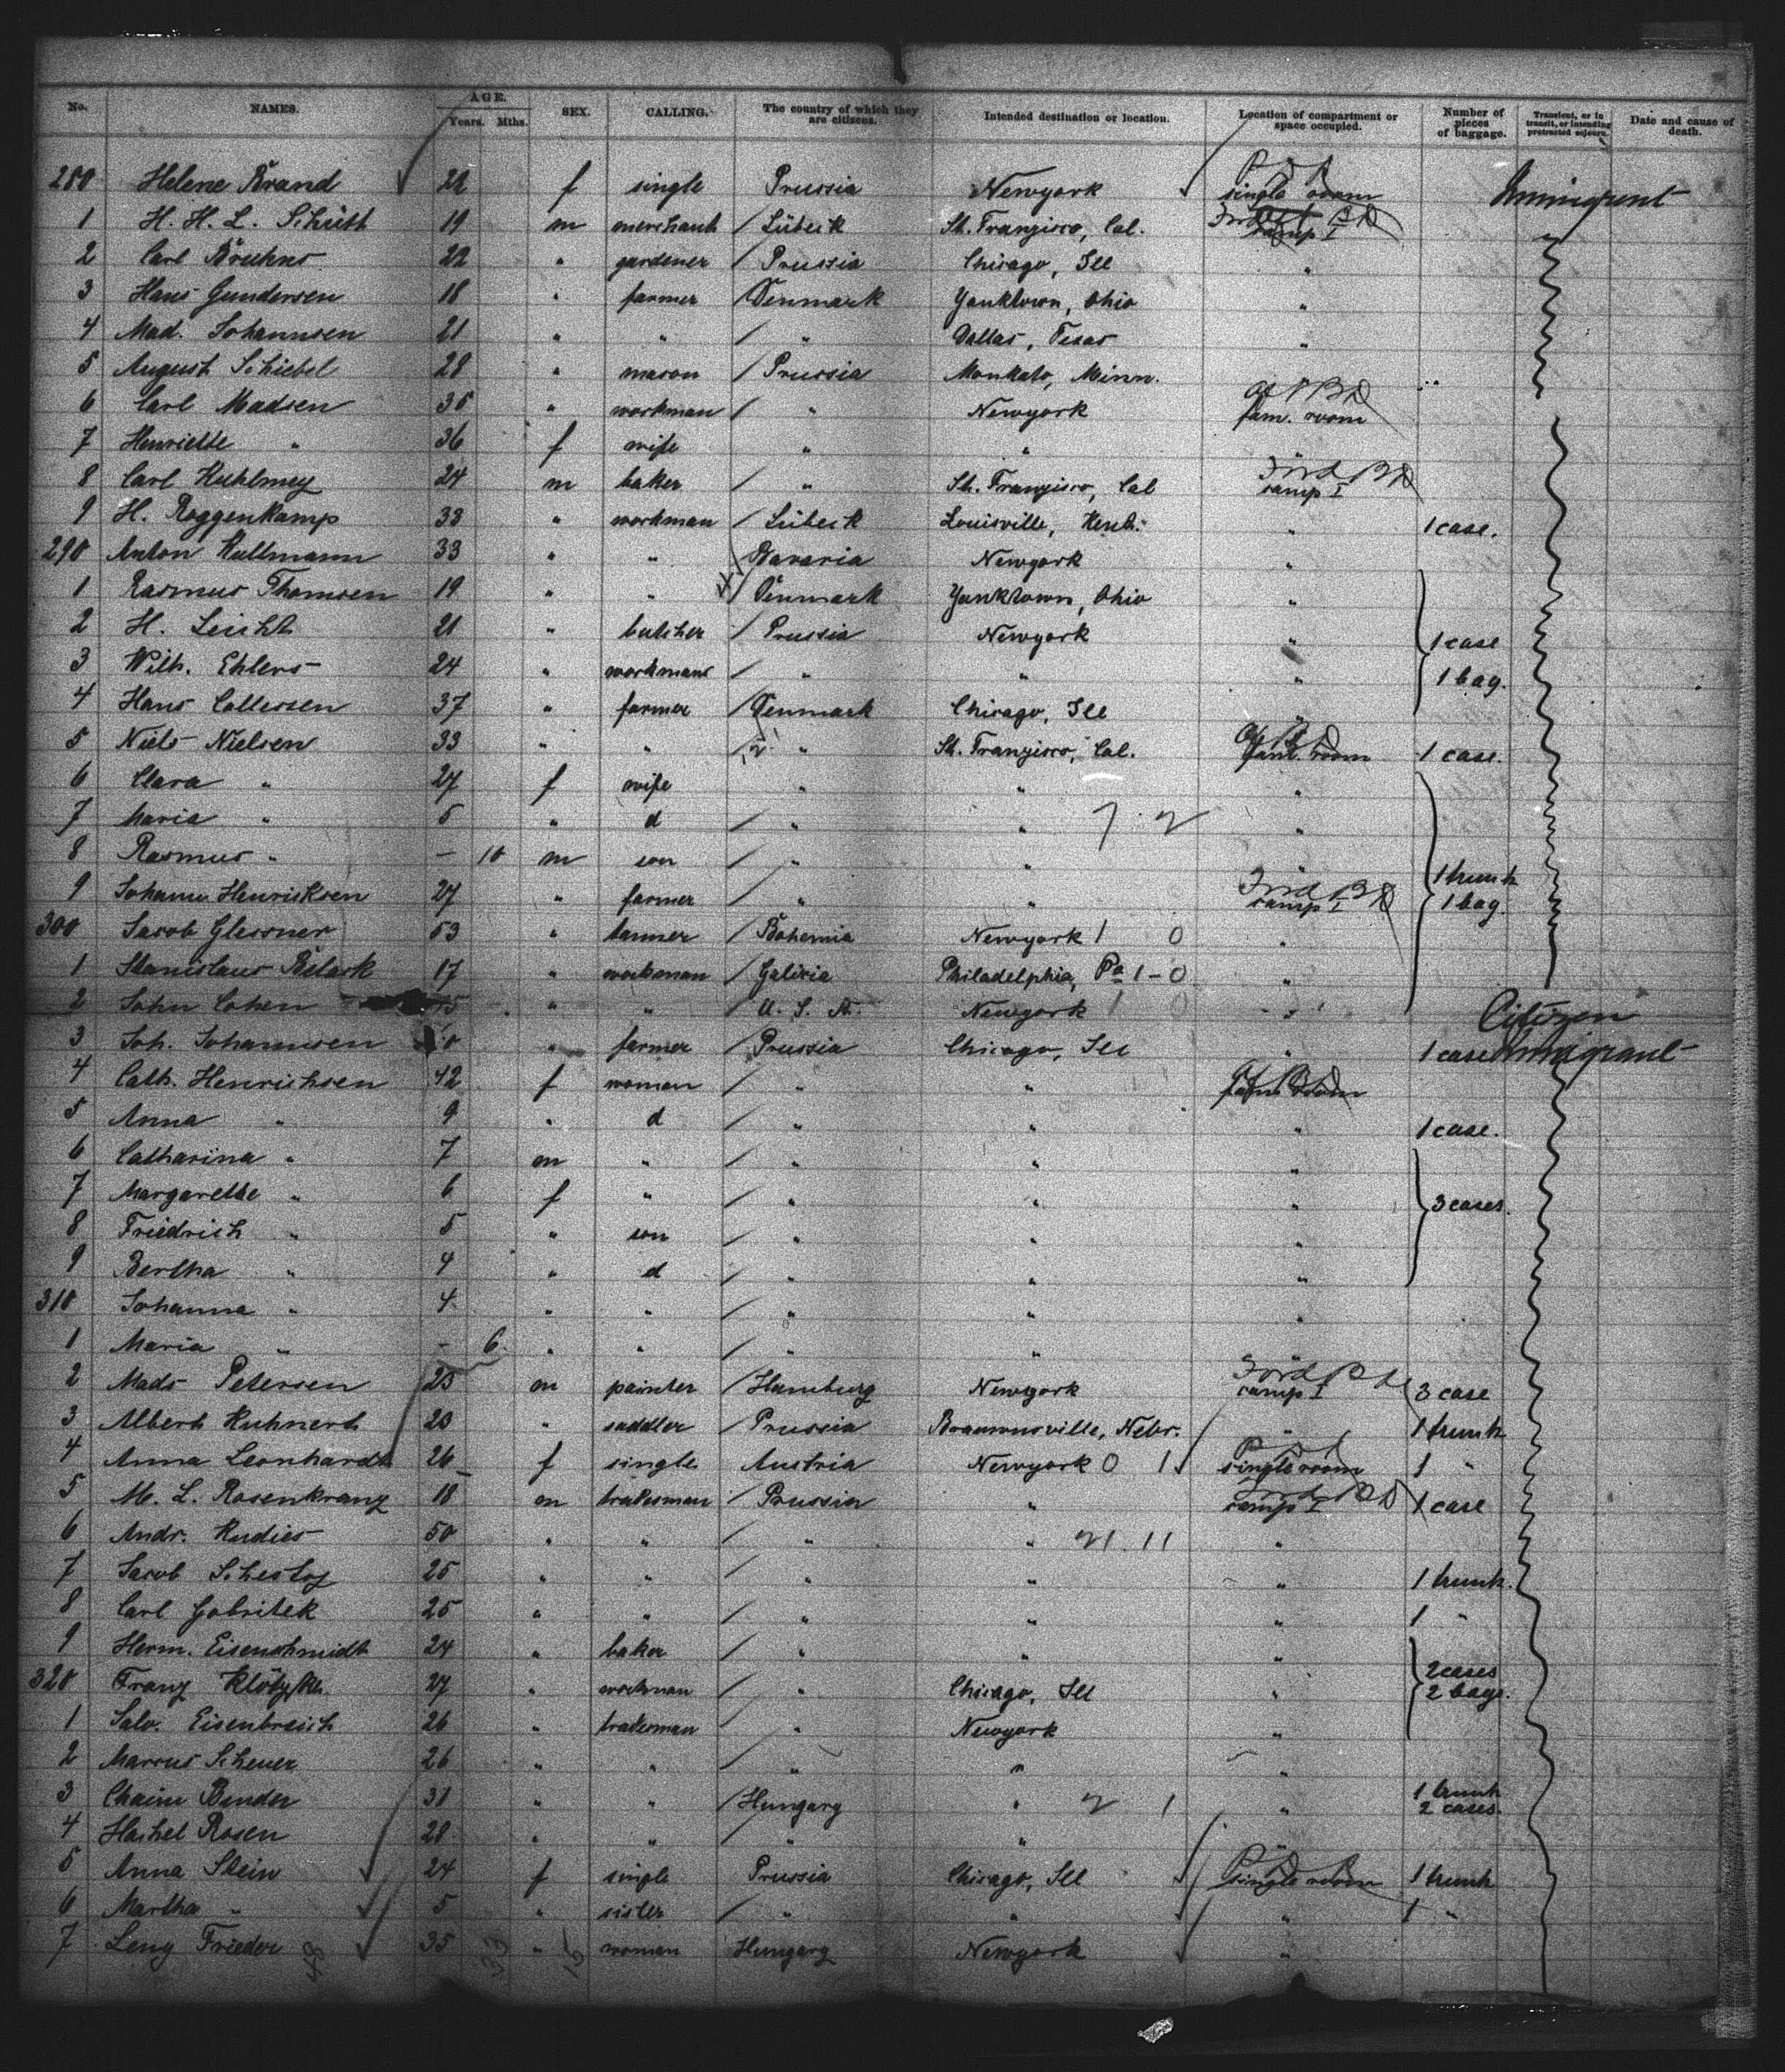 No. NAMES. AGE. Years. Mths. SEX. CALLING. The country of which they are citizens. Intended destination or location. Location of compartment or space occupied. Number of pieces of baggage. Transient, or in transit, or intending protracted sojourn. Date and cause of death.
280 Helene Brand f single Prussia Newyork single room Immigrant
1 H. H. L. Schütt 19 m merchant / Lübeck St. Franzisco, Cal. camp I
2 Carl Bruhns 22 " gardener / Prussia Chicago, Ill "
3 Hans Gundersen 18 " farmer / Denmark Yanktown, Ohio "
4 Mad. Johannsen 21 " " / " Dallas, Texas "
5 August Schiebel 28 " mason / Prussia Monkato, Minn. "
6 Carl Madsen 35 " workman / " Newyork fam. room
7 Henriette " 36 f wife " " "
8 Carl Kuhlmey 24 m baker / " St. Franzisco, Cal camp I
9 H. Roggenkamp 33 " workman / Lübeck Louisville, Kent. " 1 case.
290 Anton Kullmann 33 " " / Bavaria Newyork "
1 Rasmus Thomsen 19 " " / Denmark Yanktown, Ohio "
2 H. Leicht 21 " butcher / Prussia Newyork " 1 case
3 Wilh. Ehlers 24 " workman / " " " 1 bag.
4 Hans Callessen 37 " farmer / Denmark Chicago, Ill "
5 Niels Nielsen 33 " " / " St. Franzisco, Cal. fam. room 1 case.
6 Clara " 27 f wife " " "
7 Maria " 5 " d / " " 7 2 "
8 Rasmus " – 10 m son / " " " 1 trunk
9 Johann Henriksen 27 " farmer / " " camp I 1 bag.
300 Jacob Glessner 53 " tanner / Bohemia Newyork 1 0 "
1 Stanislaus Bielack 17 " workman / Galicia Philadelphia, Pa 1 – 0 "
2 John Cohen " " / U. S. A. Newyork 1 0 " Citizen
3 Joh. Johannsen " farmer / Prussia Chicago, Ill " 1 case Immigrant
4 Cath. Henrichsen 42 f woman / " " fam. room
5 Anna " 9 " d / " " " 1 case.
6 Catharina " 7 m " / " " "
7 Margarethe " 6 f " / " " " 3 cases.
8 Friedrich " 5 " son / " " "
9 Bertha " 4 " d / " " "
310 Johanna " 4 " " / " " "
1 Maria " – 6 " " / " "
2 Mads Petersen 25 m painter / Hamburg Newyork camp I 3 case
3 Albert Kuhnert 23 " saddler / Prussia Braunonsville, Nebr. " 1 trunk
4 Anna Leonhardt 26 f single Austria Newyork 0 1 single room 1 "
5 M. L. Rosenkranz 18 m tradesman / Prussia " camp I 1 case
6 Andr. Rudies 50 " " / " " 21. 11 "
7 Jacob Schestoz 25 " " / " " " 1 trunk.
8 Carl Gobritek 25 " " / " " " 1 "
9 Herm. Eisenschmidt 24 " baker / " " "
320 Franz 27 " workman / " Chicago, Ill " 2 cases 2 bags.
1 Salo. Eisenbreich 26 " tradesman / " Newyork "
2 Marcus Scheuer 26 " " / " " "
3 Chaim Binder 31 " " / Hungary " 2 1 " 1 trunk 2 cases.
4 Haskel Rosen 28 " " / " " "
5 Anna Stein 24 f single Prussia Chicago, Ill single room 1 trunk
6 Martha " 5 " sister / " " " 1 "
7 Leny Frieder 35 " woman Hungary Newyork "
48 33 15